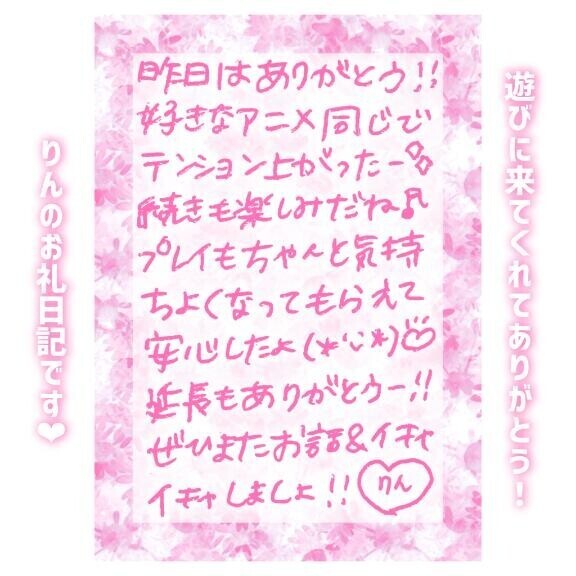 遊びに来てくれてありがとう!
昨日はありがとう!!
好きなアニメ同じで
テンション上がったー
続きも楽しみだね♪
プレイもちゃんと気持
ちよくなってもらえて
安心したよ(*'ω'*)♡
延長もありがとうー!!
ぜひまたお話&イチャ
イチャしましょ!!
りん
りんのお礼日記です❤